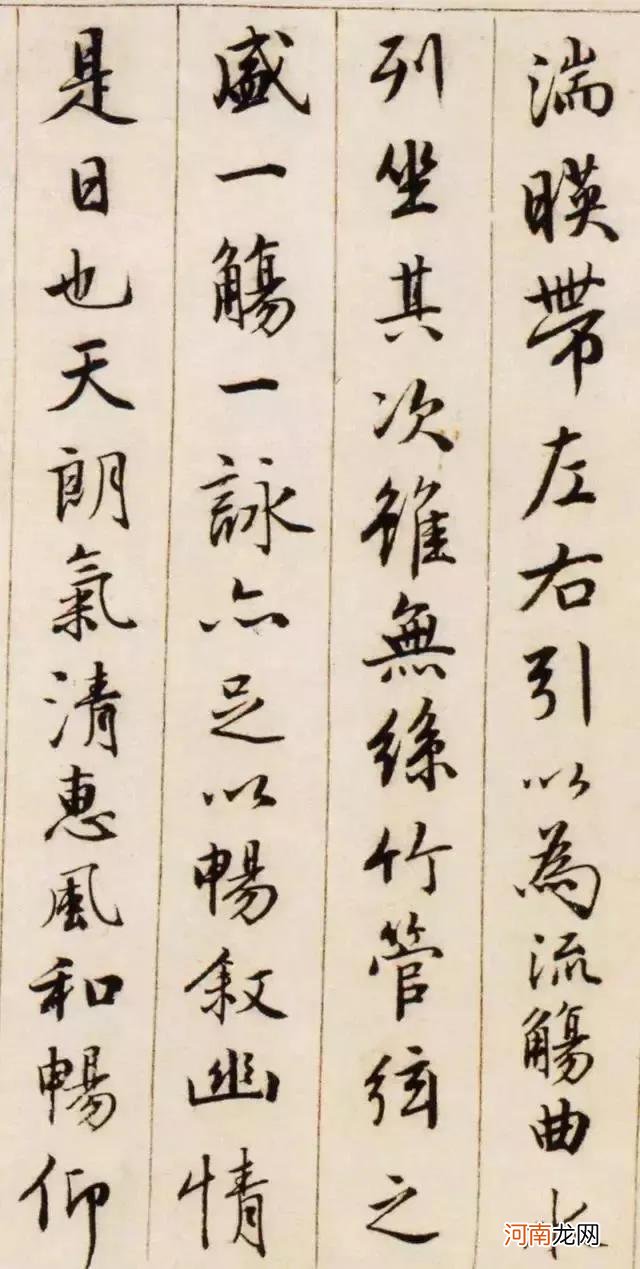 湍暎帶左右引以為流觴曲水
列坐其次雖無絲竹管弦之
盛一觴一詠亦足以暢敘幽情
是日也天朗氣清惠風和暢仰
河南龙网